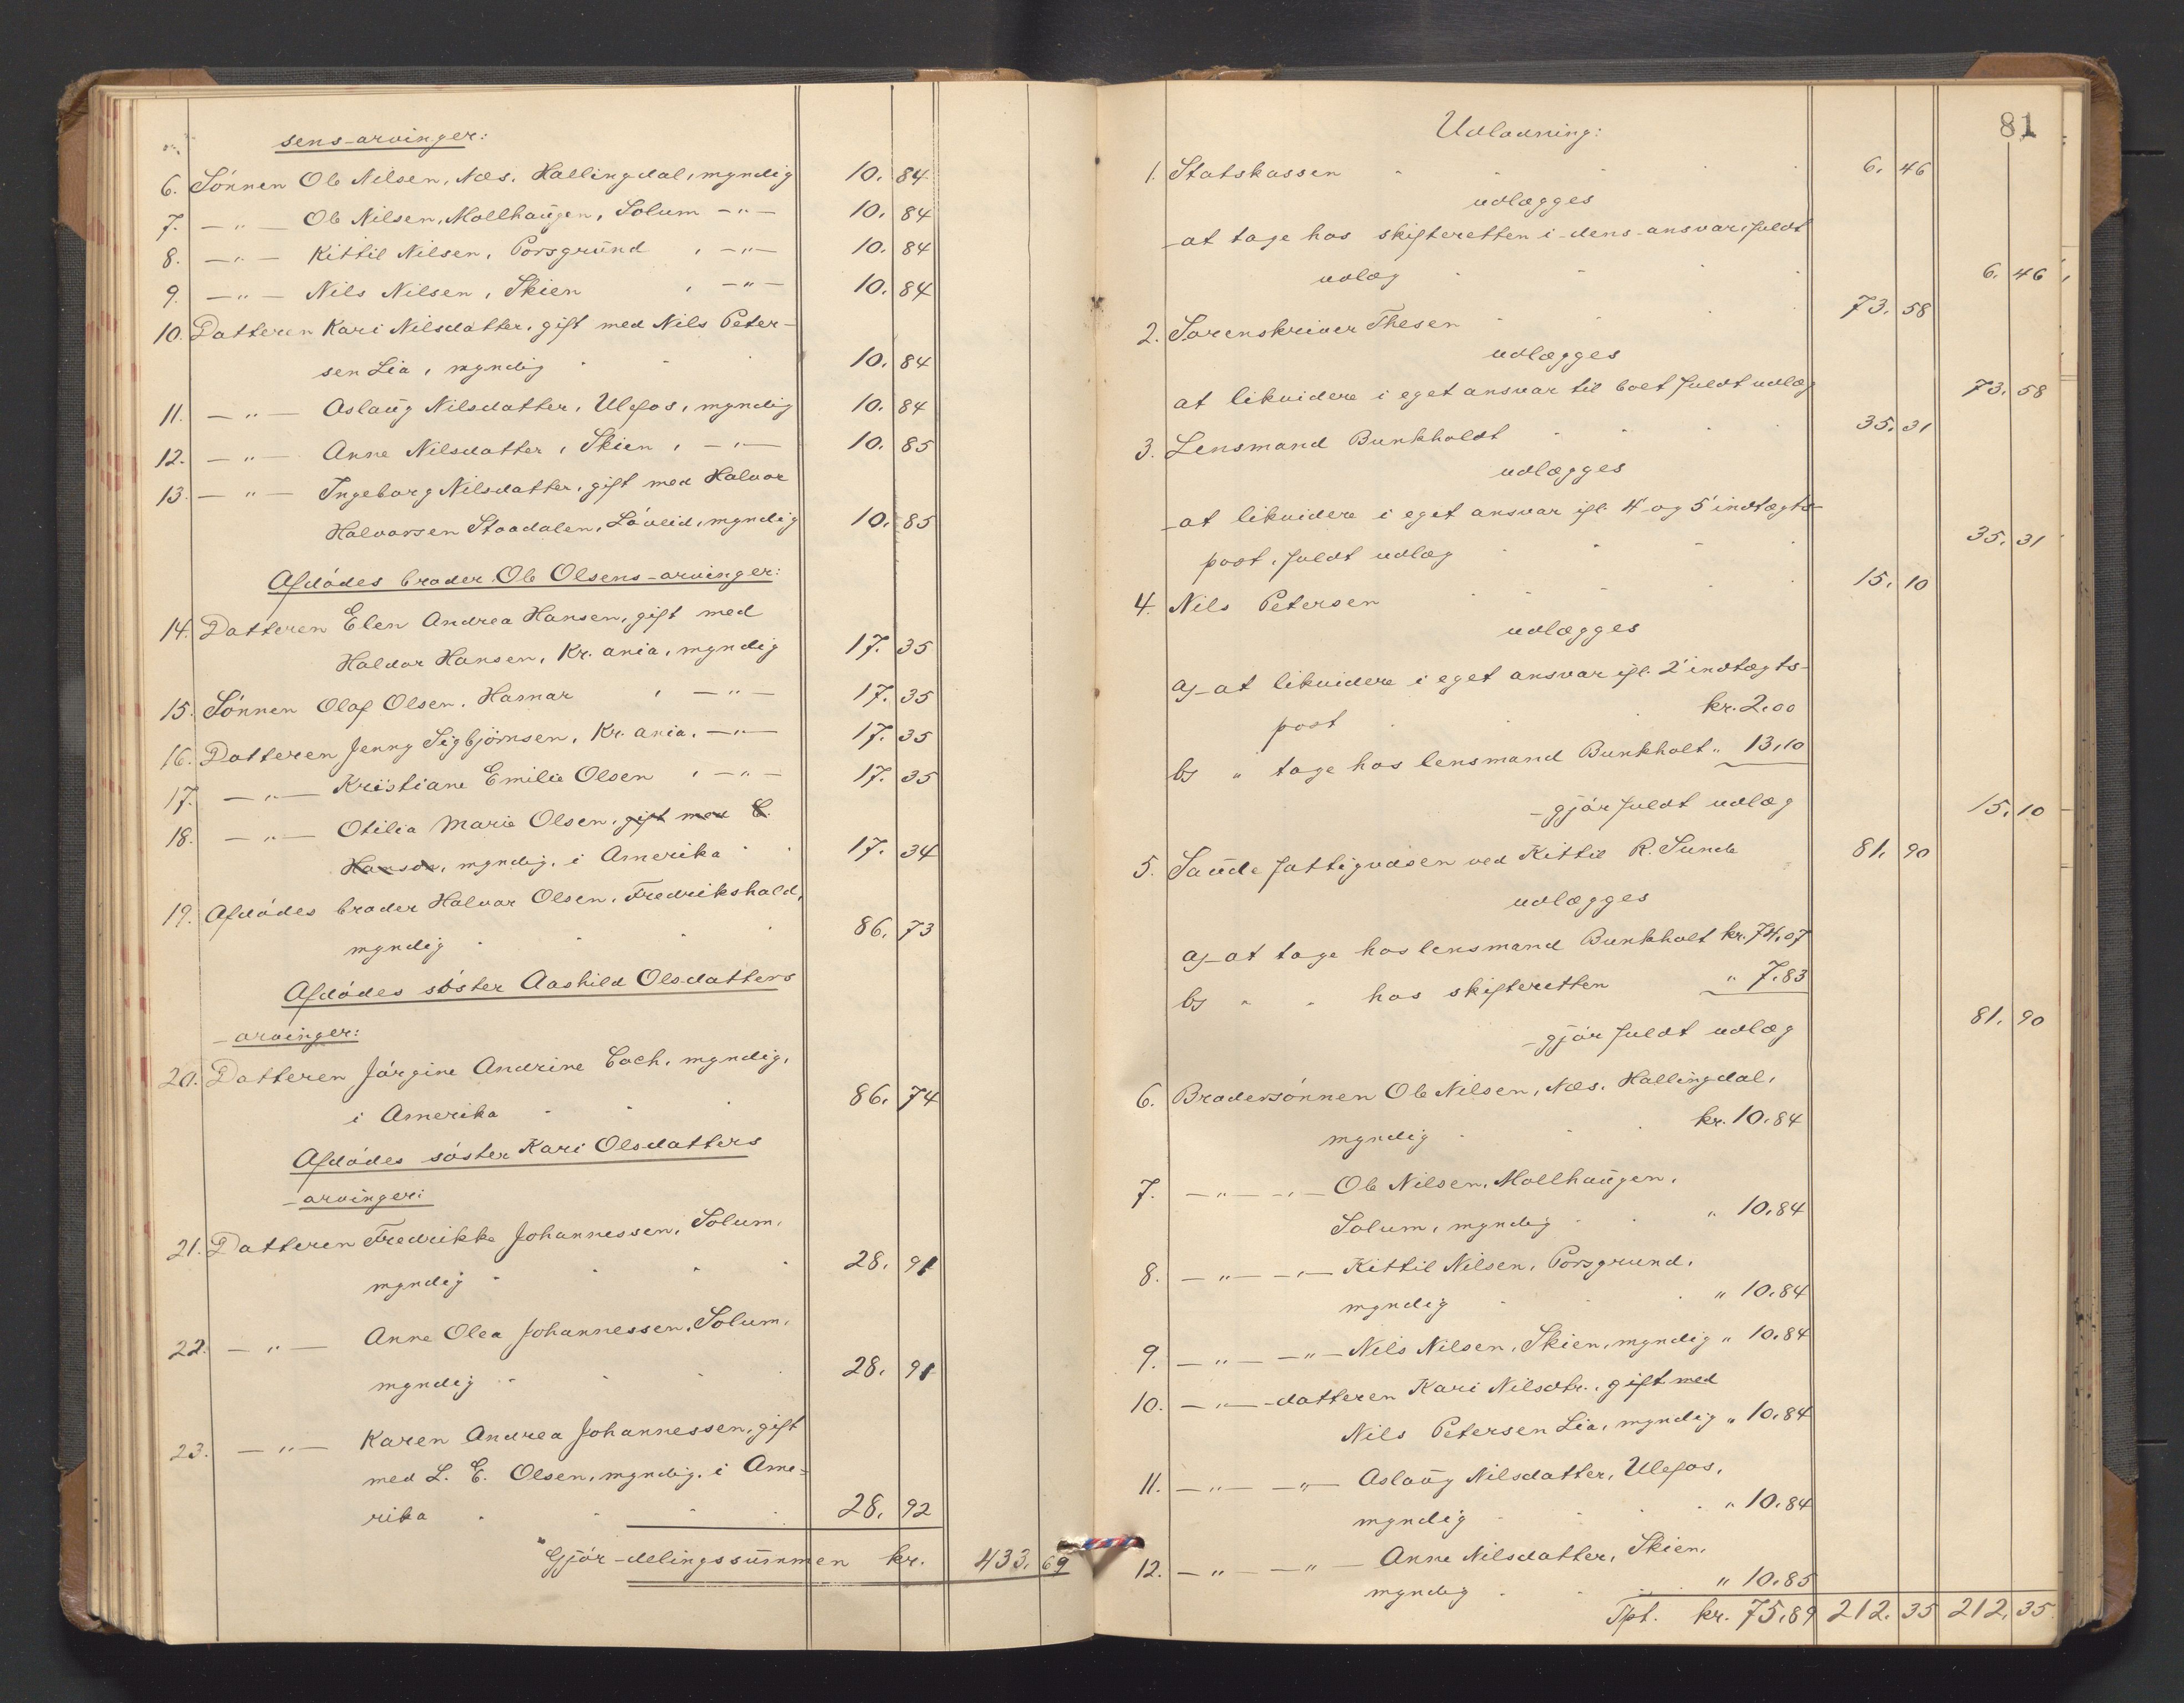 sens arvinger:
6. Sönnen Ole Nilsen, Næs, Hallingdal, myndig 10. 84
7. —"— Ole Nilsen, Mollhaugen, Solum —"— 10. 84
8. —"— Kittil Nilsen, Porsgrund, —"— 10. 84
9. —"— Nils Nilsen, Skien, —"— 10. 84
10. Datteren Kari Nilsdatter, gift med Nils Peter-
sen Lia, myndig 10. 84
11. —"— Aslaug Nilsdatter, Ulefos, myndig 10. 84
12. —"— Anne Nilsdatter, Skien, —"— 10. 85
13. —"— Ingeborg Nilsdatter, gift med Halvor
Halvorsen Staadalen, Löveid, myndig 10. 85
Afdödes broder Ole Olsens arvinger:
14. Datteren Elen Andrea Hansen, gift med
Haldor Hansen, Kr. ania, myndig 17. 35
15. Sönnen Olaf Olsen, Hamar, —"— 17. 35
16. Datteren Jenny Sigbjörnsen, Kr. ania, —"— 17. 35
17. —"— Kristiane Emilie Olsen, —"— 17. 35
18. —"— Otilia Marie Olsen, gift med E.
Hanson, myndig, i Amerika 17. 34
19. Afdödes broder Halvor Olsen, Fredrikshald,
myndig 86. 73
Afdödes söster Aashild Olsdatters
arvinger:
20. Datteren Jörgine Andrine Coch, myndig,
i Amerika 86. 74
Afdödes söster Kari Olsdatters
arvinger:
21. Datteren Fredrikke Johannessen, Solum,
myndig 28. 91
22. —"— Anne Olea Johannessen, Solum,
myndig 28. 91
23. —"— Karen Andrea Johannessen, gift
med L. E. Olsen, myndig, i Ame-
rika 28. 92
Gjör delingssummen kr. 433. 69
81
Udlodning:
1. Statskassen 6. 46
udlægges
at tage hos skifteretten i dens ansvar, fuldt
udlæg 6. 46
2. Sorenskriver Thesen 73. 58
udlægges
at likvidere i eget ansvar til boet fuldt udlæg 73. 58
3. Lensmand Bunkholdt 35. 31
udlægges
at likvidere i eget ansvar ifl. 4' og 5' indtægts-
post, fuldt udlæg 35. 31
4. Nils Petersen 15. 10
udlægges
a) at likvidere i eget ansvar ifl. 2' indtægts-
post kr. 2.00
b) " tage hos lensmand Bunkholt " 13,10
gjör fuldt udlæg 15. 10
5. Saude fattigvæsen ved Kittil R. Sunde 81. 90
udlægges
a) at tage hos lensmand Bunkholt kr. 74,07
b) " " hos skifteretten " 7.83
gjör fuldt udlæg 81. 90
6. Brodersönnen Ole Nilsen, Næs, Hallingdal,
myndig kr. 10.84
7. —"— —"— Ole Nilsen, Mollhaugen,
Solum, myndig " 10.84
8. —"— —"— Kittil Nilsen, Porsgrund,
myndig " 10.84
9. —"— —"— Nils Nilsen, Skien, myndig " 10.84
10. —"— datteren Kari Nilsdtr., gift med
Nils Petersen Lia, myndig " 10.84
11. —"— —"— Aslaug Nilsdatter, Ulefos,
myndig " 10.84
12. —"— —"— Anne Nilsdatter, Skien,
myndig " 10.85
Tpt. kr. 75.89 212. 35 212. 35